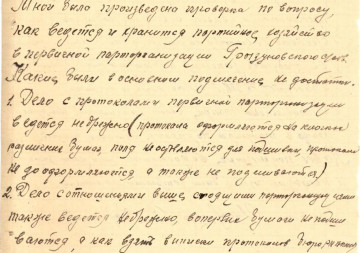 Мной была произведена проверка по вопросу,
как ведется и хранится партийное хозяйство
в первичной парторганизации
были в основном подмечены недостатки.
1. Дело с протоколами первичной парторганизации
ведется небрежно (протокола оформляются на клочках
бумаг, поля не оставляются для подшивки, протокола
не до оформляются а также не подшиваются)
2. Дело с отношениями выше стоящими парторганизациями
также ведется небрежно, во первых бумаги не подши
ваются, а как взять выписки протоколов